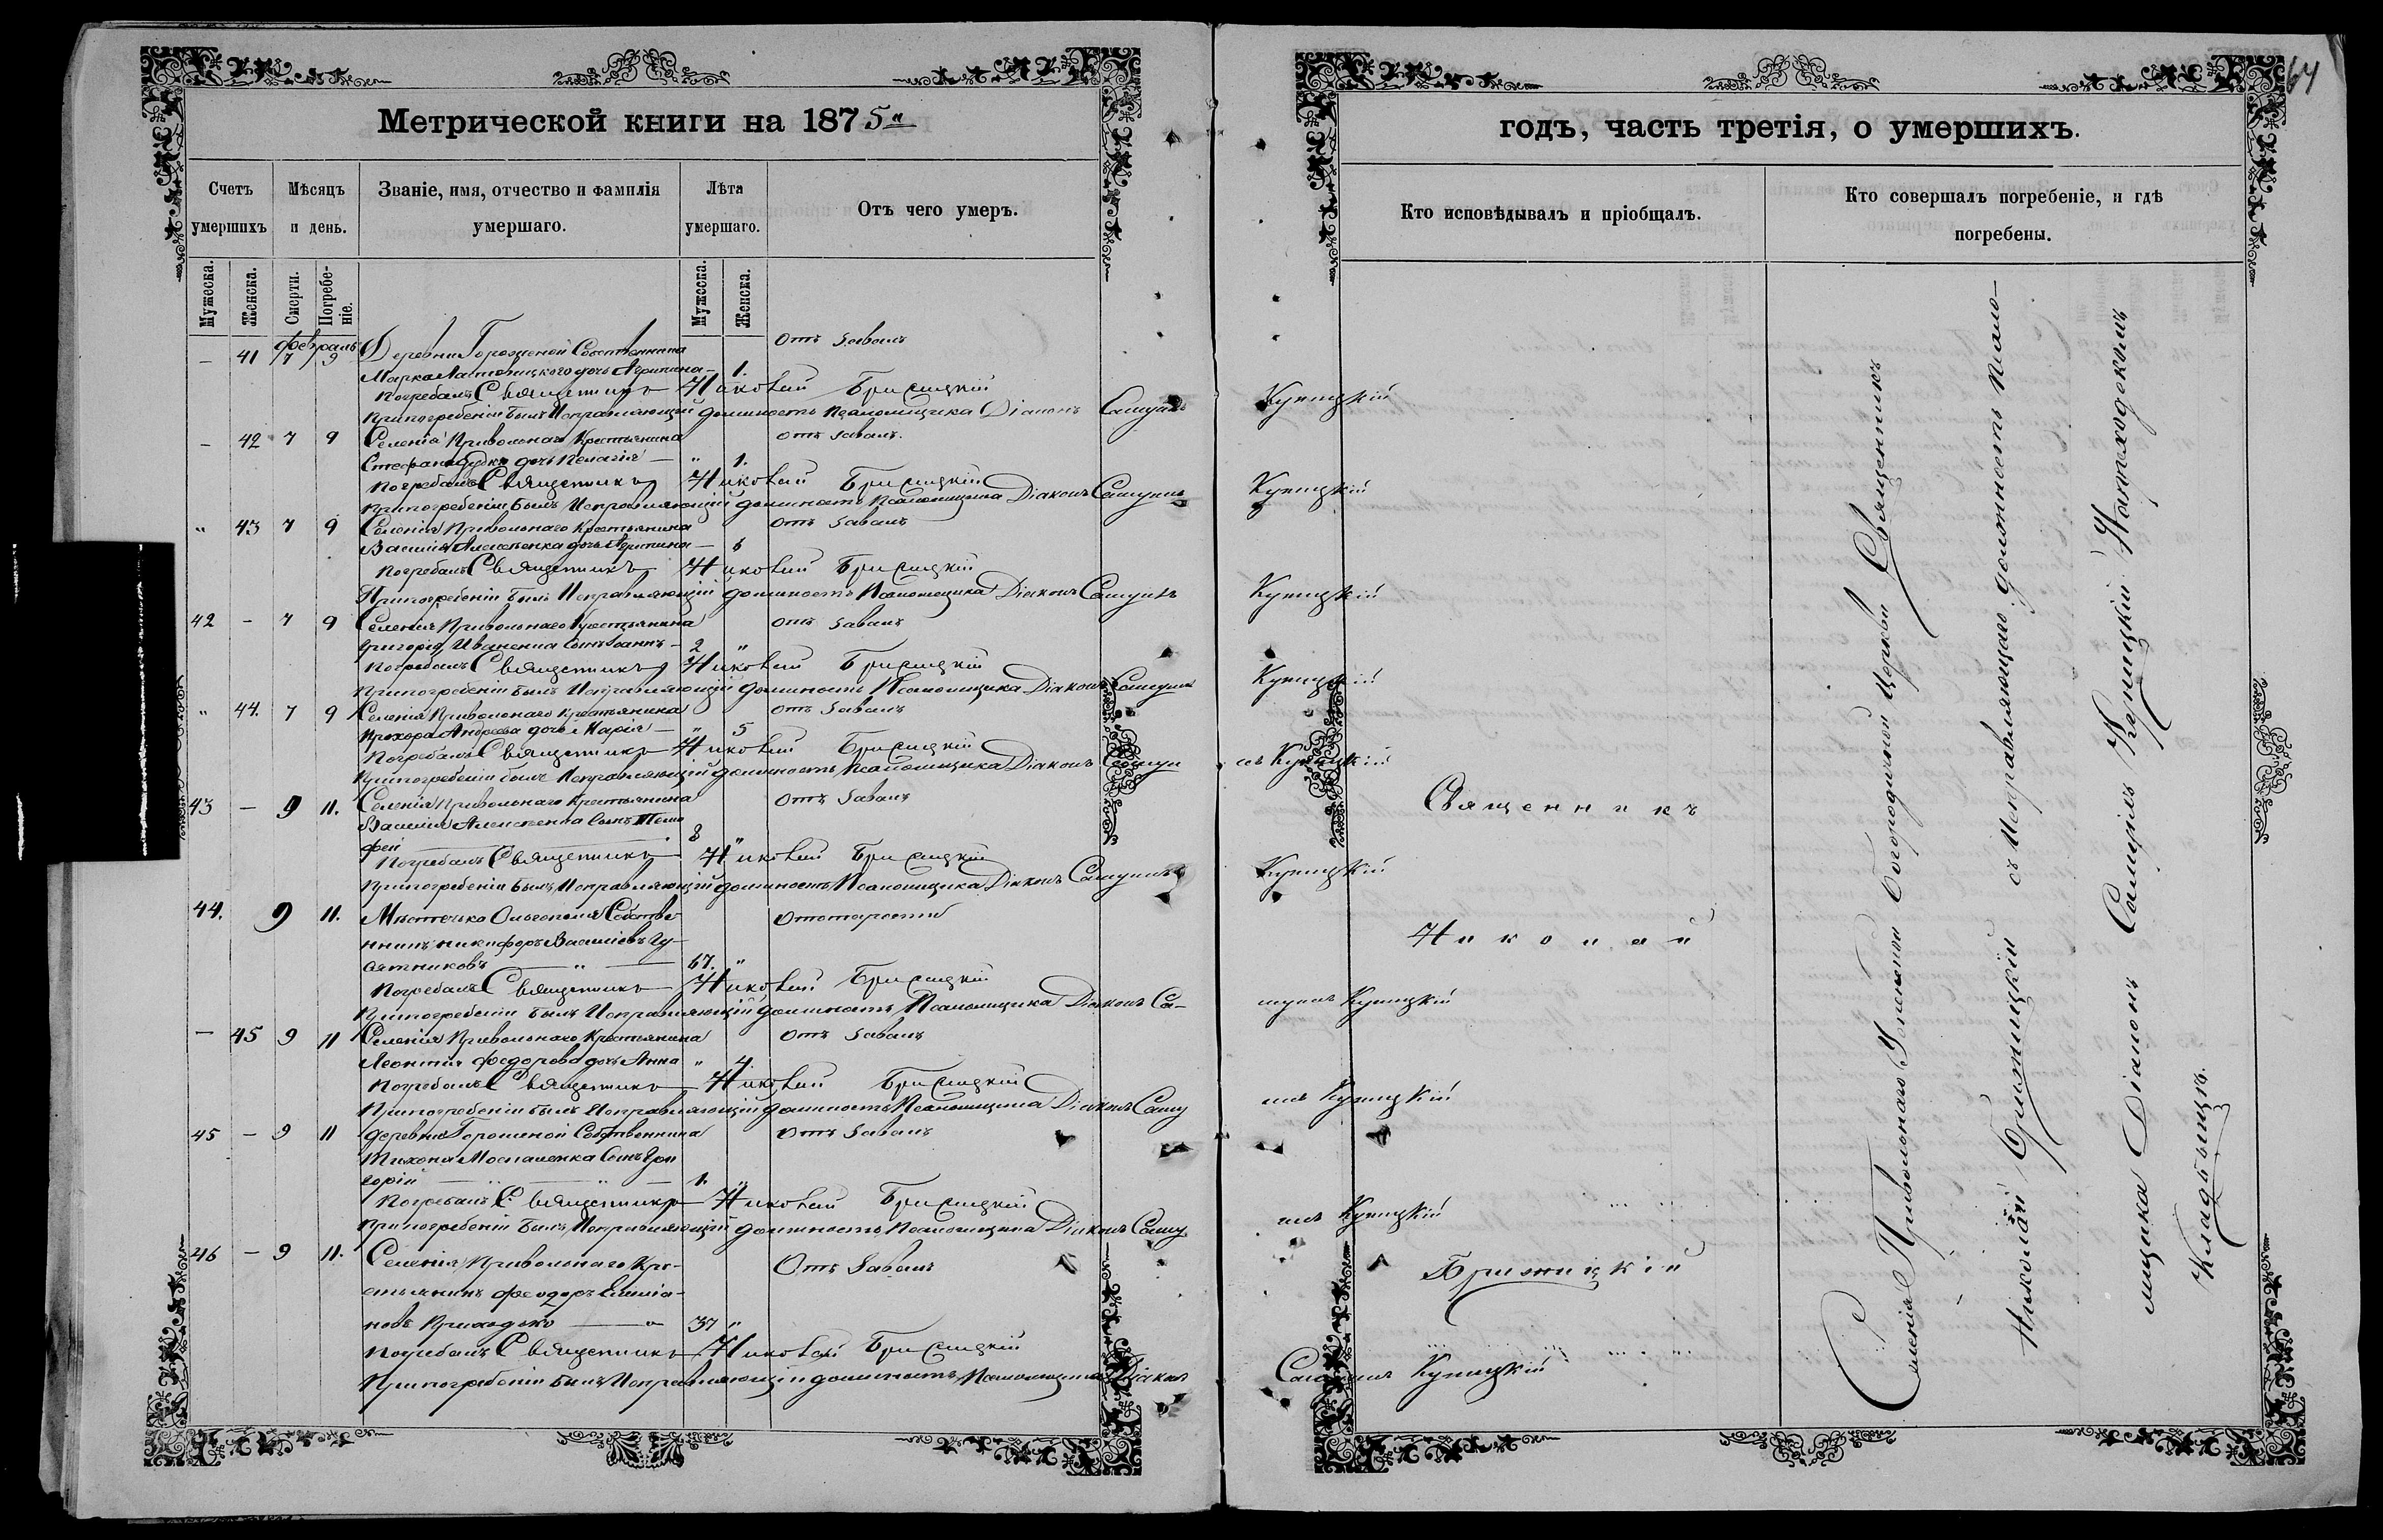 Метрической книги на 1875"
Счетъ умершихъ
Мѣсяцъ и день.
Званіе, имя, отчество и фамилія умершаго.
Лѣта умершаго.
Отъ чего умеръ.
Мужеска. Женска. Смерти. Погребеніе. Мужеска. Женска.
февраль
— 41 7 9 Деревни Горожены Собственника отъ жабы
Марка дочь Агрипина — 1.
Погребалъ Священникъ Николай Брижицкій
При погребеніи былъ Исправляющій должность Псаломщика Діаконъ Самуилъ Купицкій
— 42 7 9 Селенія Привольнаго Крестьянина отъ жабы.
Стефана дочь Пелагія — " 1.
Погребалъ Священникъ Николай Брижицкій
При погребеніи былъ Исправляющій должность Псаломщика Діаконъ Самуилъ Купицкій
" 43 7 9 Селенія Привольнаго Крестьянина отъ жабы
Василія Алексеенка дочь Агрипина —
Погребалъ Священникъ Николай Брижицкій
При погребеніи былъ Исправляющій должность Псаломщика Діаконъ Самуилъ Купицкій
42 — 7 9 Селенія Привольнаго Крестьянина отъ жабы
Григорія Иваненка сынъ Іоаннъ — 2 "
Погребалъ Священникъ Николай Брижицкій
При погребеніи былъ Исправляющій должность Псаломщика Діаконъ Самуилъ Купицкій
" 44. 7 9 Селенія Привольнаго Крестьянина отъ жабы
Прохора Андреева дочь Марія — " 5
Погребалъ Священникъ Николай Брижицкій
При погребеніи былъ Исправляющій должность Псаломщика Діаконъ Самуилъ Купицкій
43 — 9 11. Селенія Привольнаго Крестьянина отъ жабы
Василія Алексеенка сынъ Тимофей 8 "
Погребалъ Священникъ Николай Брижицкій
При погребеніи былъ Исправляющій должность Псаломщика Діаконъ Самуилъ Купицкій
44. 9 11. Мѣстечка Ольгополя Собстве- от старости
нникъ Никифоръ Васильевъ Гу-
сятниковъ — " — 67. "
Погребалъ Священникъ Николай Брижицкій
При погребеніи былъ Исправляющій должность Псаломщика Діаконъ Са-муилъ Купицкій
— 45 9 11 Селенія Привольнаго Крестьянина отъ жабы
Леонтія Федорова дочь Анна " 4.
Погребалъ Священникъ Николай Брижицкій
При погребеніи былъ Исправляющій должность Псаломщика Діаконъ Самуилъ Купицкій
45 — 9 11 деревни Горожены Собственника отъ жабы
Тихона сынъ Григорій 1. "
Погребалъ Священникъ Николай Брижицкій
При погребеніи былъ Исправляющій должность Псаломщика Діаконъ Самуилъ Купицкій
46 — 9 11. Селенія Привольнаго Кре- Отъ жабы
стьянинъ Феодоръ
новъ Приходько — " 37 "
Погребалъ Священникъ Николай Брижицкій
При погребеніи былъ Исправляющій должность Псаломщика Діаконъ Самуилъ Купицкій
64
годъ, часть третія, о умершихъ.
Кто исповѣдывалъ и пріобщалъ.
Кто совершалъ погребеніе, и гдѣ погребены.
Священникъ
Николай
Брижицкій
Селенія Привольнаго Успенской Богородичной Церкви Священникъ
Николай Брижицкій съ Исправляющаго должность псало-
мщика Діаконъ Самуилъ Купицкій На приходскомъ
Кладбищѣ.